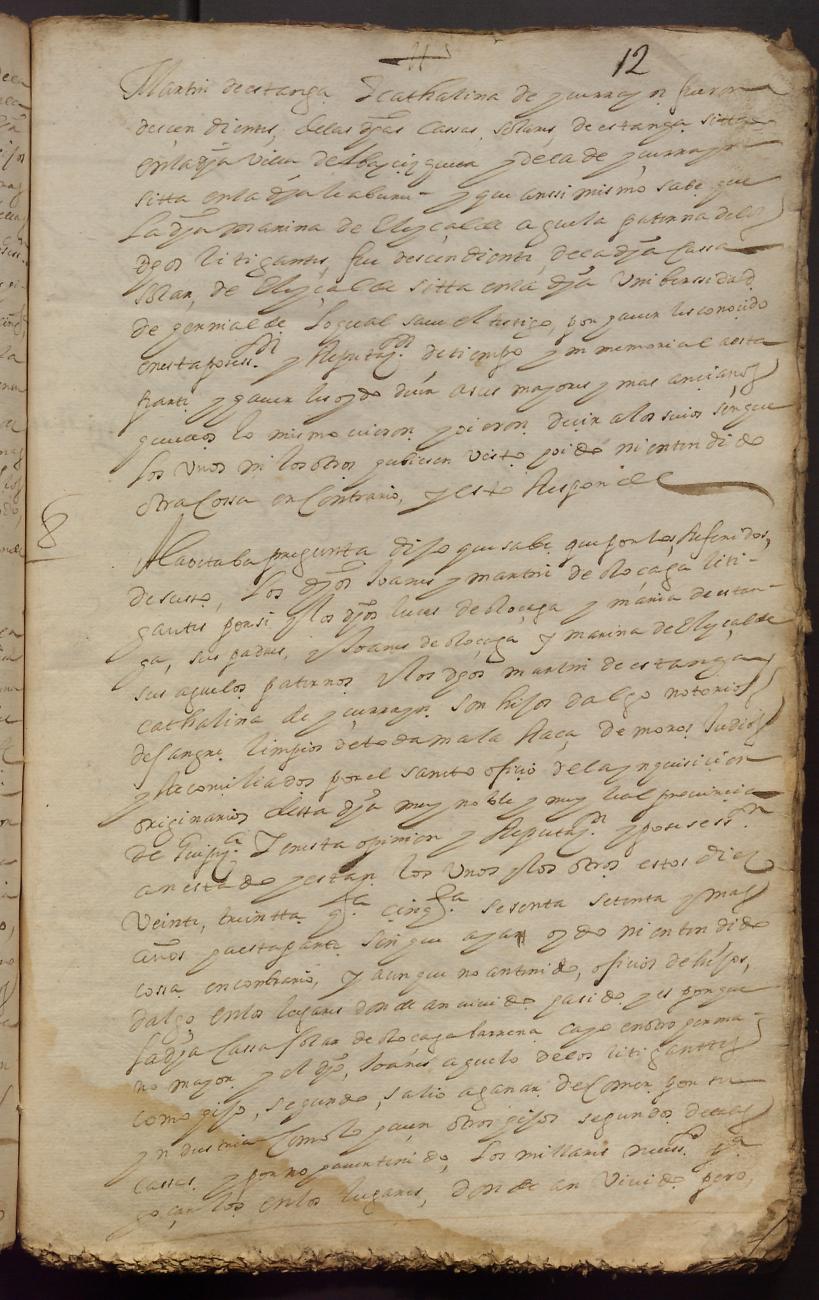 12
Martin de estanga Y cathalina de yurrayn fueron
descendientes, delas dhas Cassas, solares, de estanga sitta
en la dha Villa de y dela de yurrayn
sitta en la dha leaburu y que anssi mismo sabe que
La dha marina de Elyçalde aguela paterna delos
dhos litigantes, fue descendiente, dela dha Cassa
Solar, de Elyçalde sitta en la dha Unibersidad
de loqual saue el testigo, por hauer les conocido
en esta posess.on y Reputaz.on de tiempo ynmemorial aesta
parte y hauer les oydo deçir asus mayores y mas ancianos
quellos lo mismo vieron y oieron deçir alos suios sin que
los Unos ni los otros hubiesen visto, oido ni entendido
otra Cossa en Contrario, y esto Responde
8
Ala octaba pregunta dijo que sabe, que por los Referidos,
de susto, Los dhos Joanes y martin de Roçaga liti-
gantes por si y los dhos lucas de Roçaga y maria de estan-
ga, sus padres, y Joanes de Roçaga y marina de Elyçalde
sus aguelos paternos y los dhos martin de estanga y
cathalina de yurrayn son hijos dalgo notorios
de sangre limpios de toda mala Raça, de moros Judios
y Reconciliados por el sancto oficio de la ynquisicion
originarios desta dha muy noble y muy leal prouincia
de Guipuz.a Y en esta opinion y Reputaz.on y posesess.on
an estado y estan los Unos y los otros estos diez
Veinte, treintta q.ta cinq.ta sesenta setenta y mas
años ha esta parte sin que ayan oydo ni entendido
cossa en contrario, y aunque no an tenido, oficios de hijos,
dalgo en los lugares donde an viuido ha sido y es porque
la dha Cassa Solar de Roçaga barrena cayo en otro herma-
no mayor, y el dho, Joanes aguelo delos litigantes
como hijo, segundo, salio a ganar de Comer por su
yndustria Como lo haçen otros hijos segundos delas
cassas y por no hauer tenido, Los millares neces.os p.a
goçar los en los lugares, donde an Viuido pero,